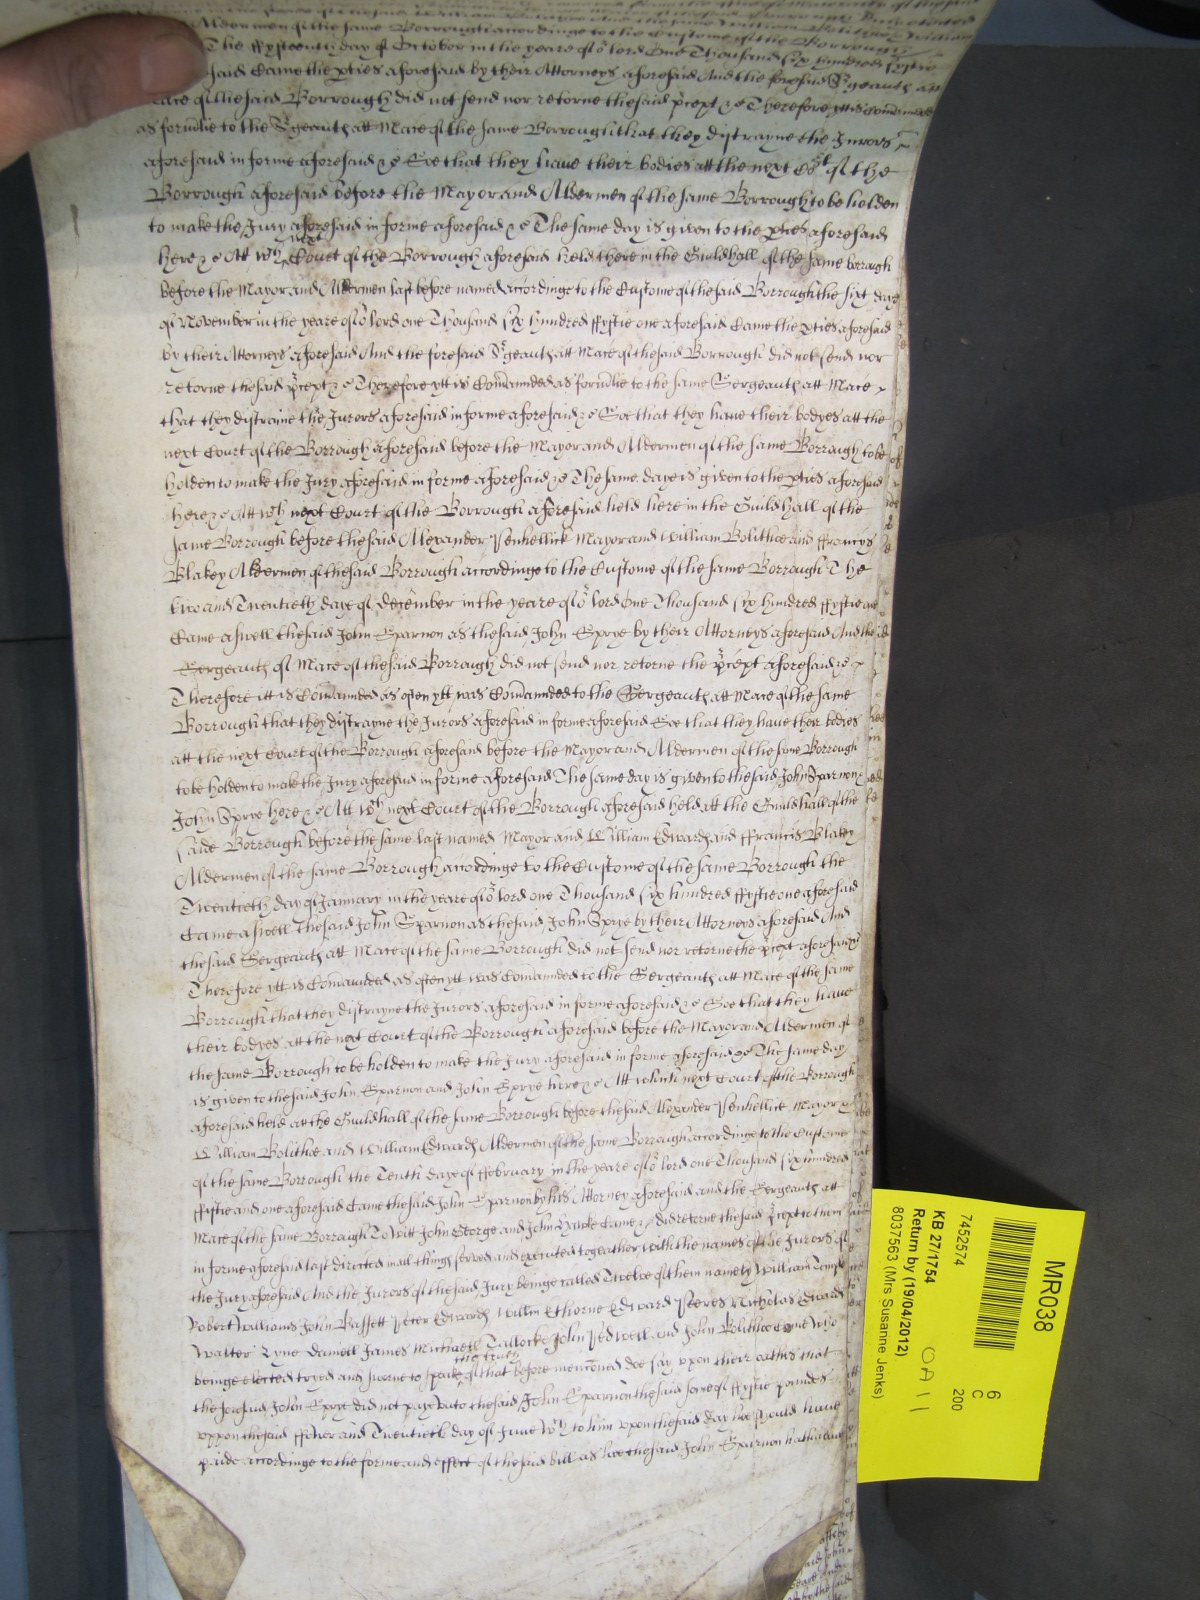 Aldermen of the same Borrough accordinge to the Custome of the Borrough
The ffyfteenth day of October in the yeare of oʳ lord One Thousand six hundred ffyftie
said Came the pties aforesaid by their Attorneys aforesaid And the foresaid Sʳgeaunth att
Mace of the said Borrough did not send nor retorne the said pʳcept &c Therefore ytt is Comaunded
as formlie to the Sʳgeaunth att Mace of the same Borrough that they distrayne the Jurors
aforesaid in forme aforesaid &c Soe that they have their bodies att the next Coʳt of the
Borrough aforesaid before the Mayor and Aldermen of the same Borrough to be holden
to make the Jury aforesaid in forme aforesaid &c The same day is given to the pties aforesaid
here &c Att wᶜʰ next Court of the Borrough aforesaid held there in the Guildhall of the same borrough
before the Mayor and Aldermen last before named accordinge to the Custome of the said Borrough the sixt day
of November in the yeare of oʳ lord one Thousand six hundred ffyftie one aforesaid Came the pties aforesaid
by their Attorneys aforesaid And the foresaid Sʳgeaunth att Mace of the said Borrough did not send nor
retorne the said pʳcept &c Therefore ytt is Comaunded as formlie to the same Sergeaunth att Mace
that they distraine the Jurors aforesaid in forme aforesaid &c Soe that they have their bodyes att the
next Court of the Borrough aforesaid before the Mayor and Aldermen of the same Borrough to be
holden to make the Jury aforesaid in forme aforesaid &c The same daye is given to the pties aforesaid
here &c Att wᶜʰ next Court of the Borrough aforesaid held here in the Guildhall of the
same Borrough before the said Alexander Penhellick Mayor and William Bolithoe and ffrancys
Blakey Aldermen of the said Borrough accordinge to the Custome of the same Borrough The
two and Twentieth daye of december in the yeare of oʳ lord One Thousand six hundred ffyftie one
Came aswell the said John Sparnon as the said John Sprye by their Attorneys aforesaid And the
Sergeaunth of Mace of the said Borrough did not send nor retorne the pʳcept aforesaid &c
Therefore itt is Comaunded as often ytt was Comaunded to the Sergeaunth att Mace of the same
Borrough that they distrayne the Jurors aforesaid in forme aforesaid Soe that they have their bodies
att the next Court of the Borrough aforesaid before the Mayor and Aldermen of the same Borrough
to be holden to make the Jury aforesaid in forme aforesaid The same day is given to the said John Sparnon
John Sprye here &c Att wᶜʰ next Court of the Borrough aforesaid held att the Guildhall of the
saide Borrough before the same last named Mayor and William Edwards and ffrancis Blakey
Aldermen of the same Borrough accordinge to the Custome of the same Borrough the
Twentieth day of January in the yeare of oʳ lord one Thousand six hundred ffyftie one aforesaid
Came aswell the said John Sparnon as the said John Sprye by their Attorneys aforesaid And
the said Sergeaunth att Mace of the same Borrough did not send nor retorne the pʳcept aforesaid
Therefore ytt is Comaunded as often ytt was Comaunded to the Sergeaunth att Mace of the same
Borrough that they distrayne the Jurors aforesaid in forme aforesaid &c Soe that they have
their bodyes att the next Court of the Borrough aforesaid before the Mayor and Aldermen of
the same Borrough to be holden to make the Jury aforesaid in forme aforesaid &c The same day
is given to the said John Sparnon and John Sprye here &c Att which next Court of the Borrough
aforesaid held att the Guildhall of the same Borrough before the said Alexander Penhellick Mayor
William Bolithoe and William Edwards Aldermen of the same Borrough accordinge to the Custome
of the same Borrough the Tenth daye of ffebruary in the yeare of oʳ lord one Thousand six hundred
ffyftie and one aforesaid Came the said John Sparnon by his Attorney aforesaid and the Sergeaunth att
Mace of the same Borrough To witt John George and John Came & did retorne the said pʳcept to them
in forme aforesaid last directed in all things served and executed togeather with the names of the Jurors of
the Jury aforesaid And the Jurors of the said Jury beinge called Twelve of them namely William Temple
Robert Williams John Bassett Peter Edwards Willm Ethorne Edward Peeres Nicholas Edwards
Walter Tyne James Michaell Tallocke John Pedwell and John Bolithoe Come who
beinge elected tryed and sworne to speake the truth of that before menconed doe say upon their oathes that
the foresaid John Sprye did not paye unto the said John Sparnon the said some of ffyftie poundes
uppon the said ffower and Twentieth day of June wᶜʰ to him upon the said day hee should have
paide accordinge to the forme and effect of the said bill as hee the said John Sparnon hath
MR038
6
C
200
7452574
KB 27/1754
Return by (19/04/2012)
8037563 (Mrs Susanne Jenks)